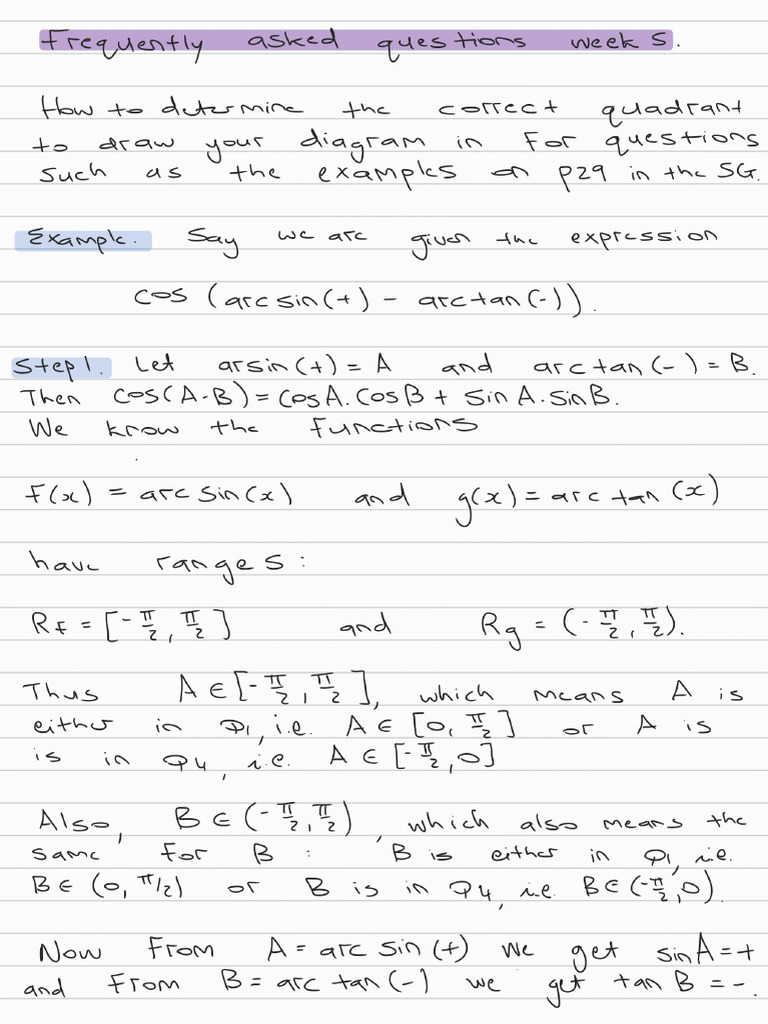 Frequently asked questions week 5.
How to determine the correct quadrant
to draw your diagram in for questions
such as the examples on p29 in the SG.
Example. Say we are given the expression
cos (arcsin(+) - arctan(-)).
Step 1. Let arsin(+) = A and arctan(-) = B.
Then cos(A-B) = cosA.cosB + sinA.sinB.
We know the functions
f(x) = arcsin(x) and g(x) = arctan(x)
have ranges:
Rf = [-π/2, π/2] and Rg = (-π/2, π/2).
Thus A ∈ [-π/2, π/2], which means A is
either in Q1, i.e. A ∈ [0, π/2] or A is
is in Q4, i.e. A ∈ [-π/2, 0]
Also, B ∈ (-π/2, π/2), which also means the
same for B : B is either in Q1, i.e.
B ∈ (0, π/2) or B is in Q4, i.e. B ∈ (-π/2, 0).
Now from A = arcsin(+) we get sinA = +
and from B = arctan(-) we get tanB = -.